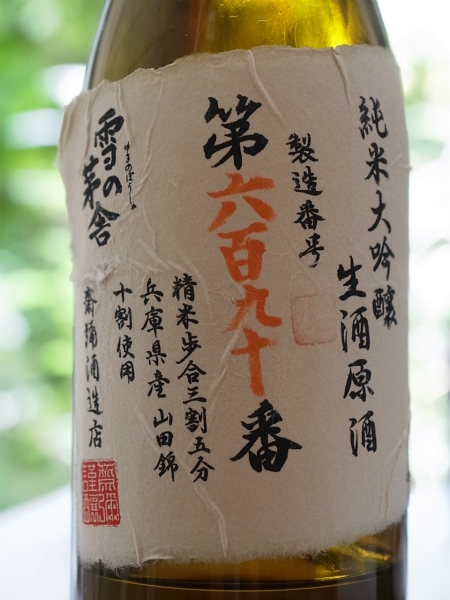 純米大吟醸
生酒原酒
製造番号
第六百九十番
精米歩合三割五分
兵庫県産 山田錦
十割使用
雪の茅舎
ゆきのぼうしゃ
齋彌酒造店